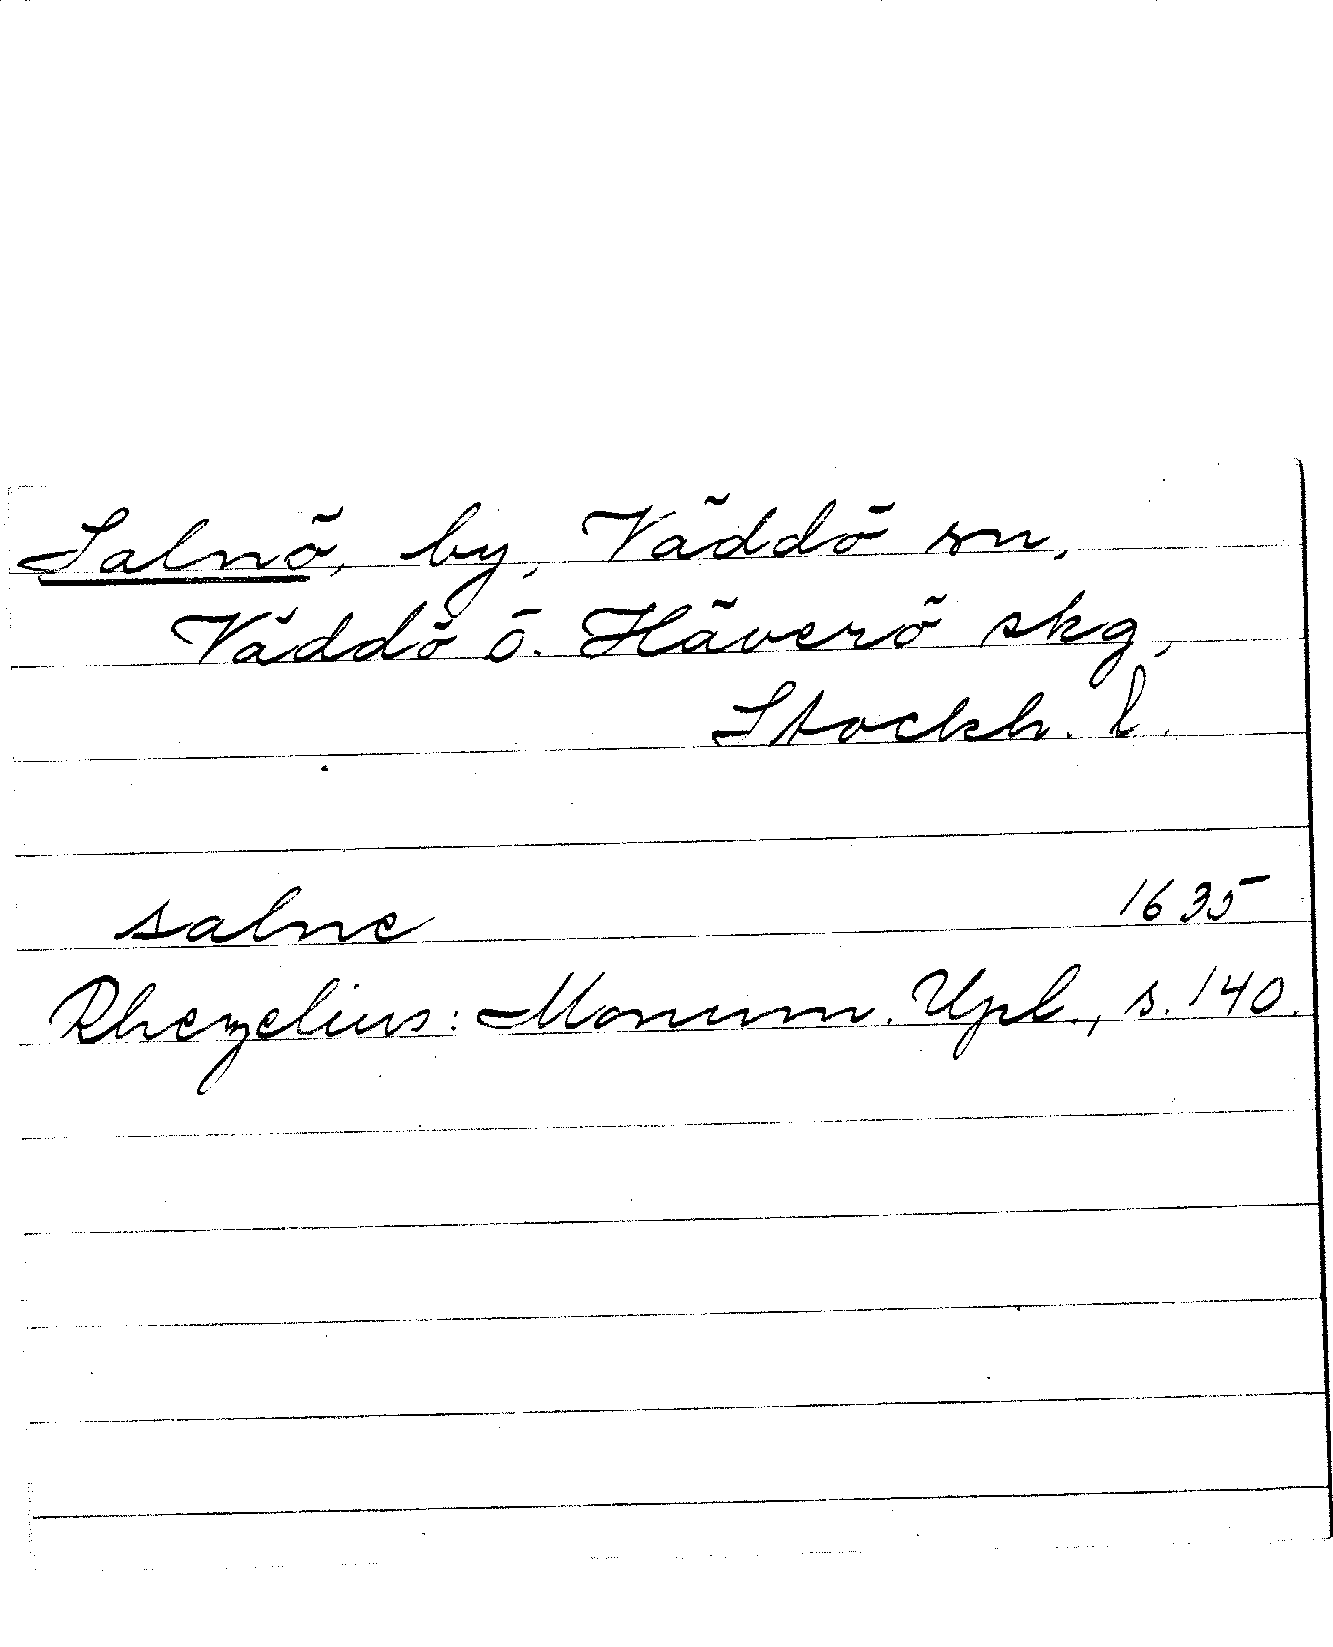 Salnö, by, Väddö sn,
Väddö o. Häverö skg,
Stockh. l.
salne 1635
Rhezelius: Monum. Upl., s. 140.